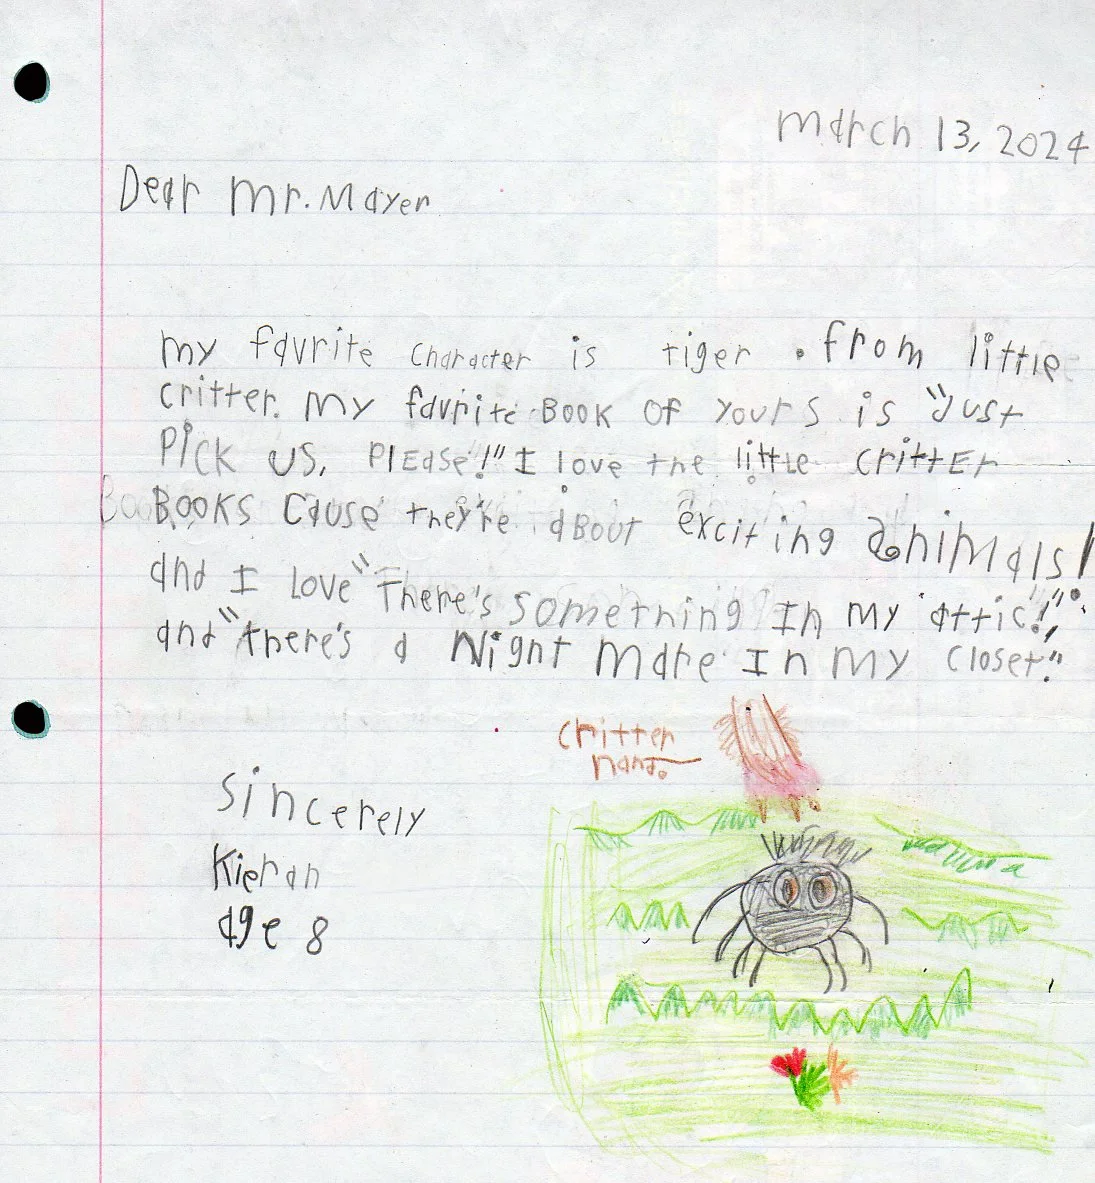 March 13, 2024
Dear Mr. Mayer
My favrite character is tiger. from little
critter. My favrite Book of yours is "Just
Pick us, Please!" I love the little critter
Books Cause they're about exciting animals!
and I love "There's something In my attic!",
and "there's a Night mare In my closet."
critter
hand.
Sincerely
Kieran
age 8